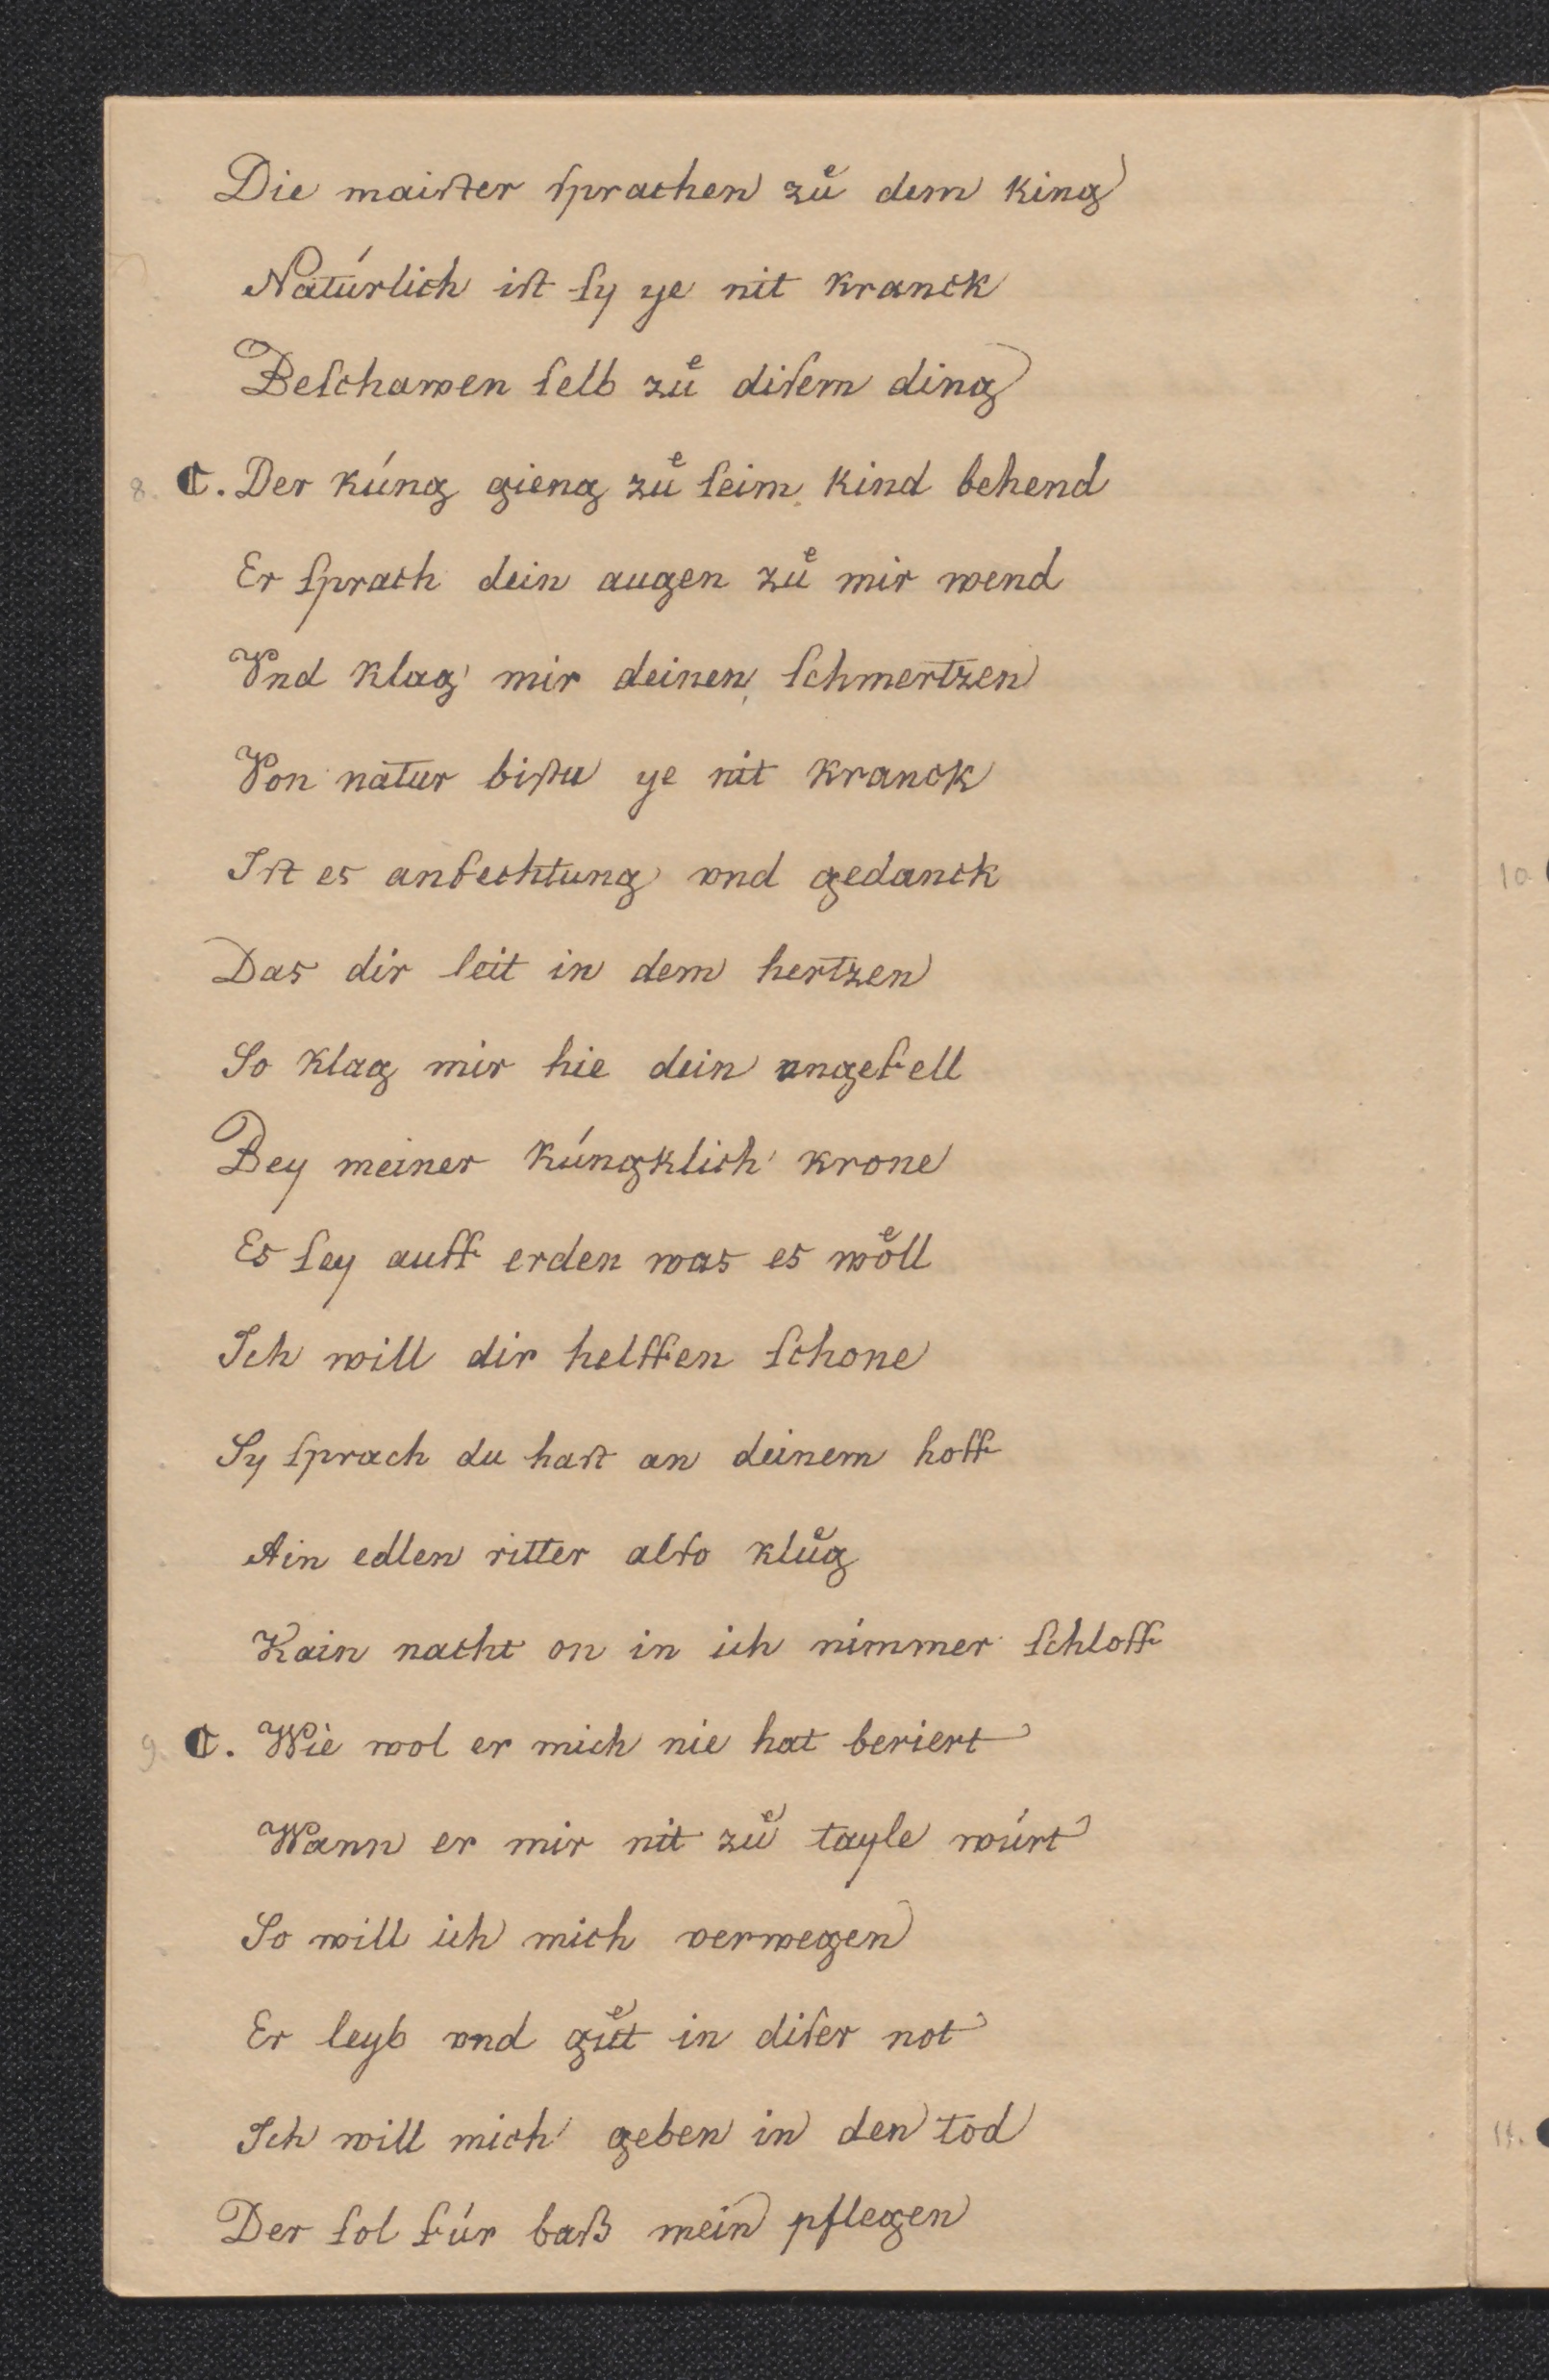 Die maiſter ſprachen zuͤ dem king
Natúrlich iſt ſy ye nit kranck
Beſchawen ſelb zuͤ diſem ding
8. C. Der kúng gieng zuͤ ſeim kind behend
Er ſprach dein augen zuͤ mir wend
Vnd klag mir deinen ſchmertzen
Von natur biſtu ye nit kranck
Iſt es anfechtung vnd gedanck
Das dir leit in dem hertzen
So klag mir hie dein vngefell
Bey meiner kúngklich krone
Es ſey auff erden was es woͤll
Ich will dir helffen ſchone
Sy ſprach du haſt an deinem hoff
Ain edlen ritter alſo kluͤg
Kain nacht on in ich nimmer ſchloff
9. C. Wie wol er mich nie hat beriert
Wann er mir nit zuͤ tayle wúrt
So will ich mich verwegen
Er leyb vnd guͤt in diſer not
Ich will mich geben in den tod
Der ſol fúr baß mein pflegen
10
11.